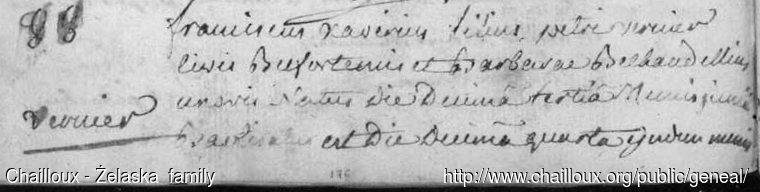 88
franciscus xaverius filius petri vernier
civis Belfortensis et Barbarae Bechaud ellius
vernier
uxoris Natus Die Decimâ tertiâ Mensis
Baptisatus est Die Decimâ quarta ejusdem mensis
Chailloux - Żelaska family
http://www.chailloux.org/public/geneal/